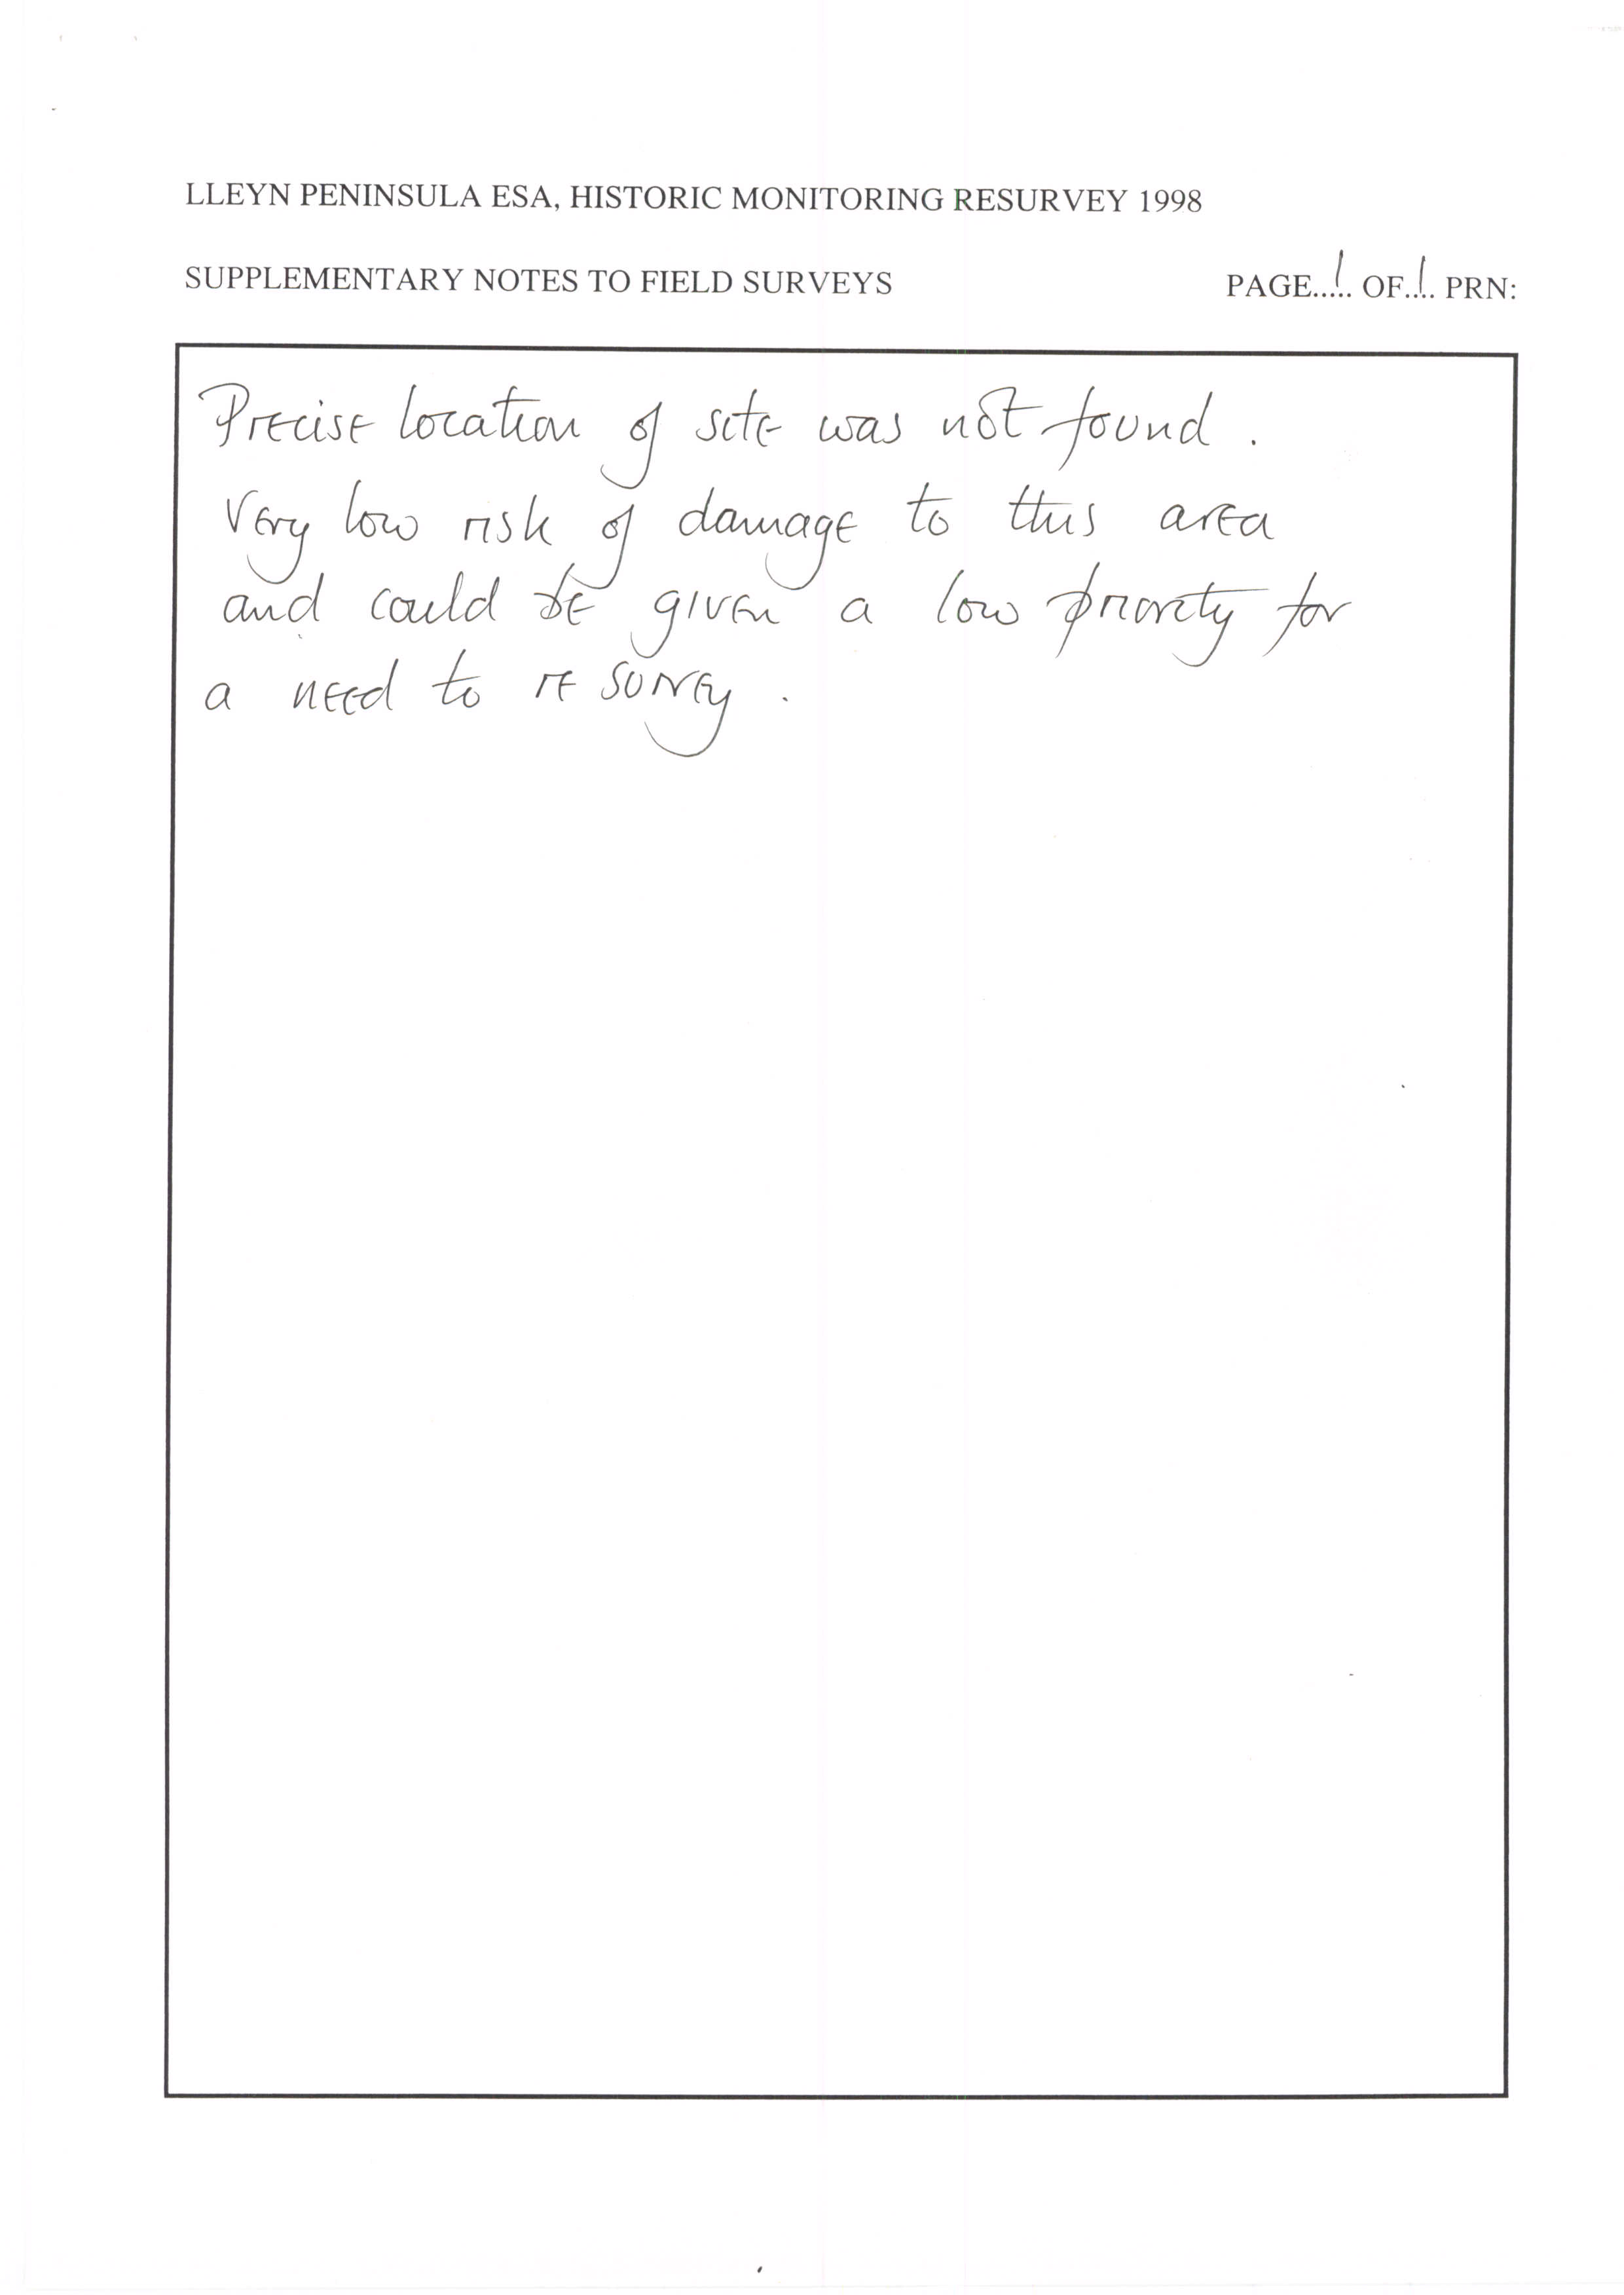 LLEYN PENINSULA ESA, HISTORIC MONITORING RESURVEY 1998
SUPPLEMENTARY NOTES TO FIELD SURVEYS PAGE..1.. OF..1.. PRN:
Precise location of site was not found.
Very low risk of damage to this area
and could be given a low priority for
a need to re survey.